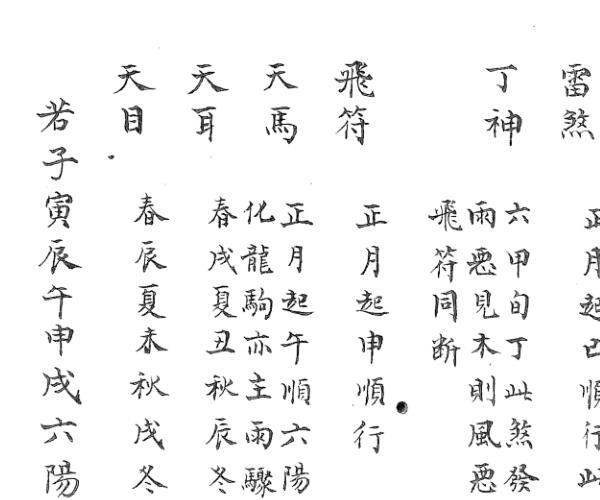 雷煞 正月起巳順行此
丁神 六甲旬丁此煞發
雨惡見木則風惡
飛符同断
飛符 正月起申順行
天馬 正月起午順六陽
化龍駒亦主雨驟
天耳 春戌夏丑秋辰冬
天目 春辰夏未秋戌冬
若子寅辰午申戌六陽